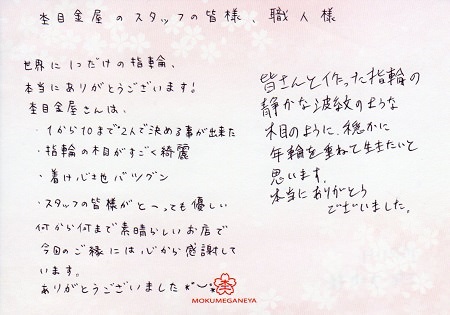 杢目金屋のスタッフの皆様、職人様
世界に1つだけの指輪、
本当にありがとうございます!
杢目金屋さんは、
・1から10まで2人で決める事が出来た
・指輪の木目がすごく綺麗
・着け心地バツグン
・スタッフの皆様がとっても優しい
何から何まで素晴らしいお店で
今回のご縁には心から感謝して
います。
ありがとうございました
皆さんと作った指輪の
静かな波紋のような
木目のように、穏かに
年輪を重ねて生きたいと
思います。
本当にありがとう
ございました。
MOKUMEGANEYA